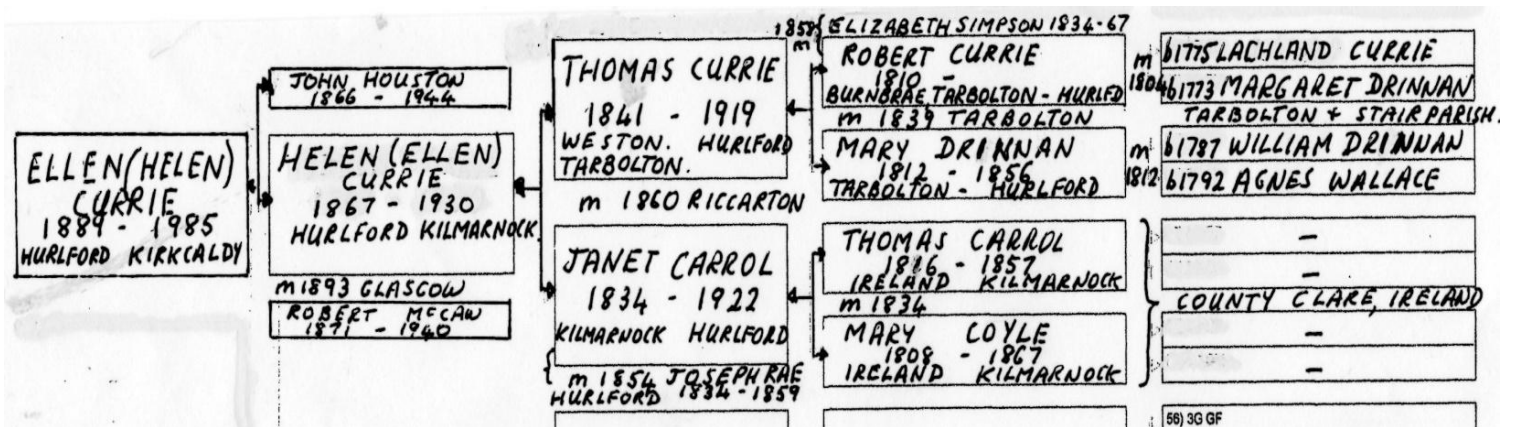 ELLEN (HELEN)
CURRIE
1889 - 1985
HURLFORD KIRKCALDY
JOHN HOUSTON
1866 - 1944
HELEN (ELLEN)
CURRIE
1867 - 1930
HURLFORD KILMARNOCK
m 1893 GLASCOW
ROBERT McCAW
1871 - 1940
THOMAS CURRIE
1841 - 1919
WESTON. HURLFORD
TARBOLTON.
m 1860 RICCARTON
JANET CARROL
1834 - 1922
KILMARNOCK HURLFORD
m 1854 JOSEPH RAE
HURLFORD 1834 - 1859
1858 { ELIZABETH SIMPSON 1834-67
m
ROBERT CURRIE
1810 -
BURNBRAE, TARBOLTON - HURLFD
m 1839 TARBOLTON
MARY DRINNAN
1812 - 1856
TARBOLTON - HURLFORD
THOMAS CARROL
1816 - 1857
IRELAND KILMARNOCK
m 1834
MARY COYLE
1808 - 1867
IRELAND KILMARNOCK
m b1775 LACHLAND CURRIE
1804 b1773 MARGARET DRINNAN
TARBOLTON + STAIR PARISH.
m b1787 WILLIAM DRINNAN
1812 b1792 AGNES WALLACE
-
-
COUNTY CLARE, IRELAND
-
-
56) 3G GF